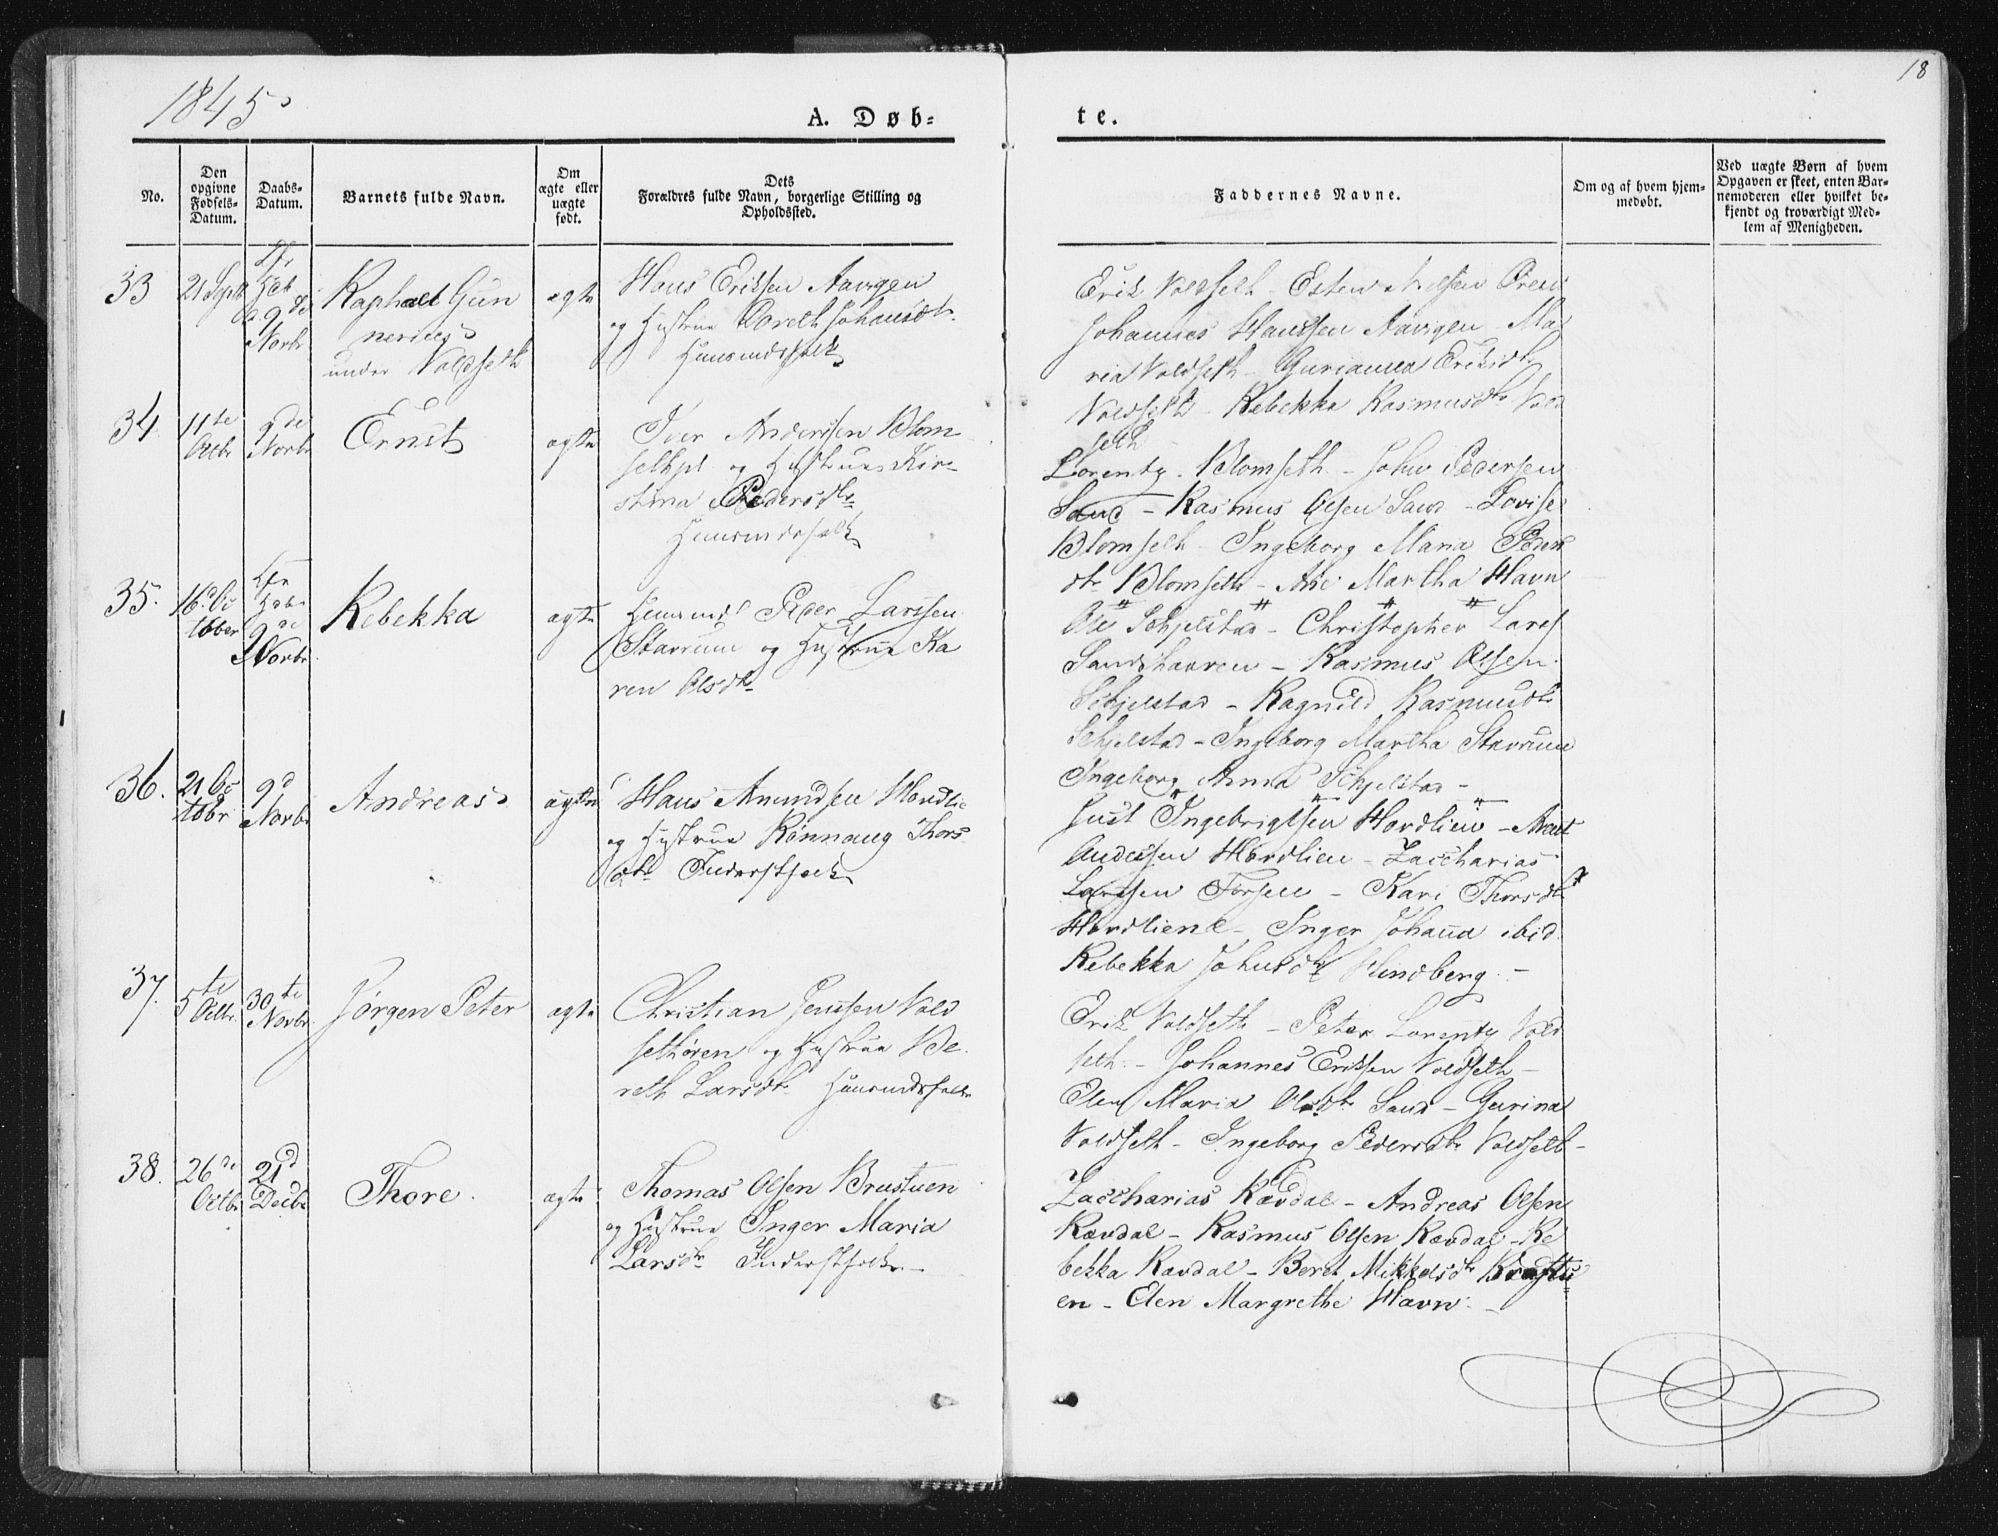 1845
18
A. Døb=
te.
No.
Den opgivne Fødsels-Datum.
Daabs-Datum.
Barnets fulde Navn.
Om ægte eller uægte født.
Dets Forældres fulde Navn, borgerlige Stilling og Opholdssted.
Faddernes Navne.
Om og af hvem hjemmedøbt.
Ved uægte Børn af hvem Opgaven er skeet, enten Barnemoderen eller hvilket bekjendt og troværdigt Medlem af Menigheden.
33
21 Septb
9de
Novbr
Raphael Gun
nerius
under Voldseth
ægte
Hans Eriksen Aavigen
og Hustrue Doreth Johansdtr
Huusmdsfolk
Erik Voldseth - Esten Nilsen
Johannes Hanssen Aavigen - Ma
ria Voldseth - Eriksdtr
Voldseth - Rebekka Rasmusdtr Vold
seth
34
11te
Octbr
9de
Novbr
Ernst
ægte
Iver Andersen Blom
sethpl og Hustrue Kir
stina Pedersdtr
Huusmdsfolk
Lorentz Blomseth - John Pedersen
Sand - Rasmus Olsen Sand - Lovise
Blomseth - Ingeborg Maria Peders
dtr Blomseth - Martha Havn
35.
16. Oc
tober
9de
Novbr
Rebekka
ægte
Huusmd Peder Larssen
Stavrum og Hustrue Ka
ren Olsdtr
Ole Schjelstad - Christopher Lars
Sandshavren - Rasmus Olsen
Schjelstad - Ragnild Rasmusdtr
Schjelstad - Ingeborg Martha Stavrum
Ingeborg Anna Schjelstad -
36.
21 Oc
tobr
9d
Novbr
Andreas
ægte
Hans Amundsen Hordlie
og Hustrue Rønnaug Thors
dtr Inderstfolk
Just Ingebrigtsen Hordlien -
Andersen Hordlien - Zaccharias
Larssen Forsen - Kari Thorsdtr
Hordlien - Inger Johanna ibid
Rebekka Johnsdtr Hindberg. -
37.
5te
Octbr.
30te
Novbr.
Jørgen Peter
ægte
Christian Jenssen Vold
sethøren og Hustrue Be
reth Larsdtr Huusmdsfolk
Erik Voldseth - Peter Lorentz Vold
seth - Johannes Eriksen Voldseth -
Elen Maria Olsdtr Sand - Gurina
Voldseth - Ingeborg Pedersdtr Voldseth -
38.
26de
Octbr
21d
Decbr
Thore
ægte
Thomas Olsen Brustuen
og Hustrue Inger Maria
Larsdtr Inderstfolk -
Zaccharias Rævdal - Andreas Olsen
Rævdal - Rasmus Olsen Rævdal - Re
bekka Rævdal - Beret Mikkelsdtr
en - Elen Margrethe Havn. -